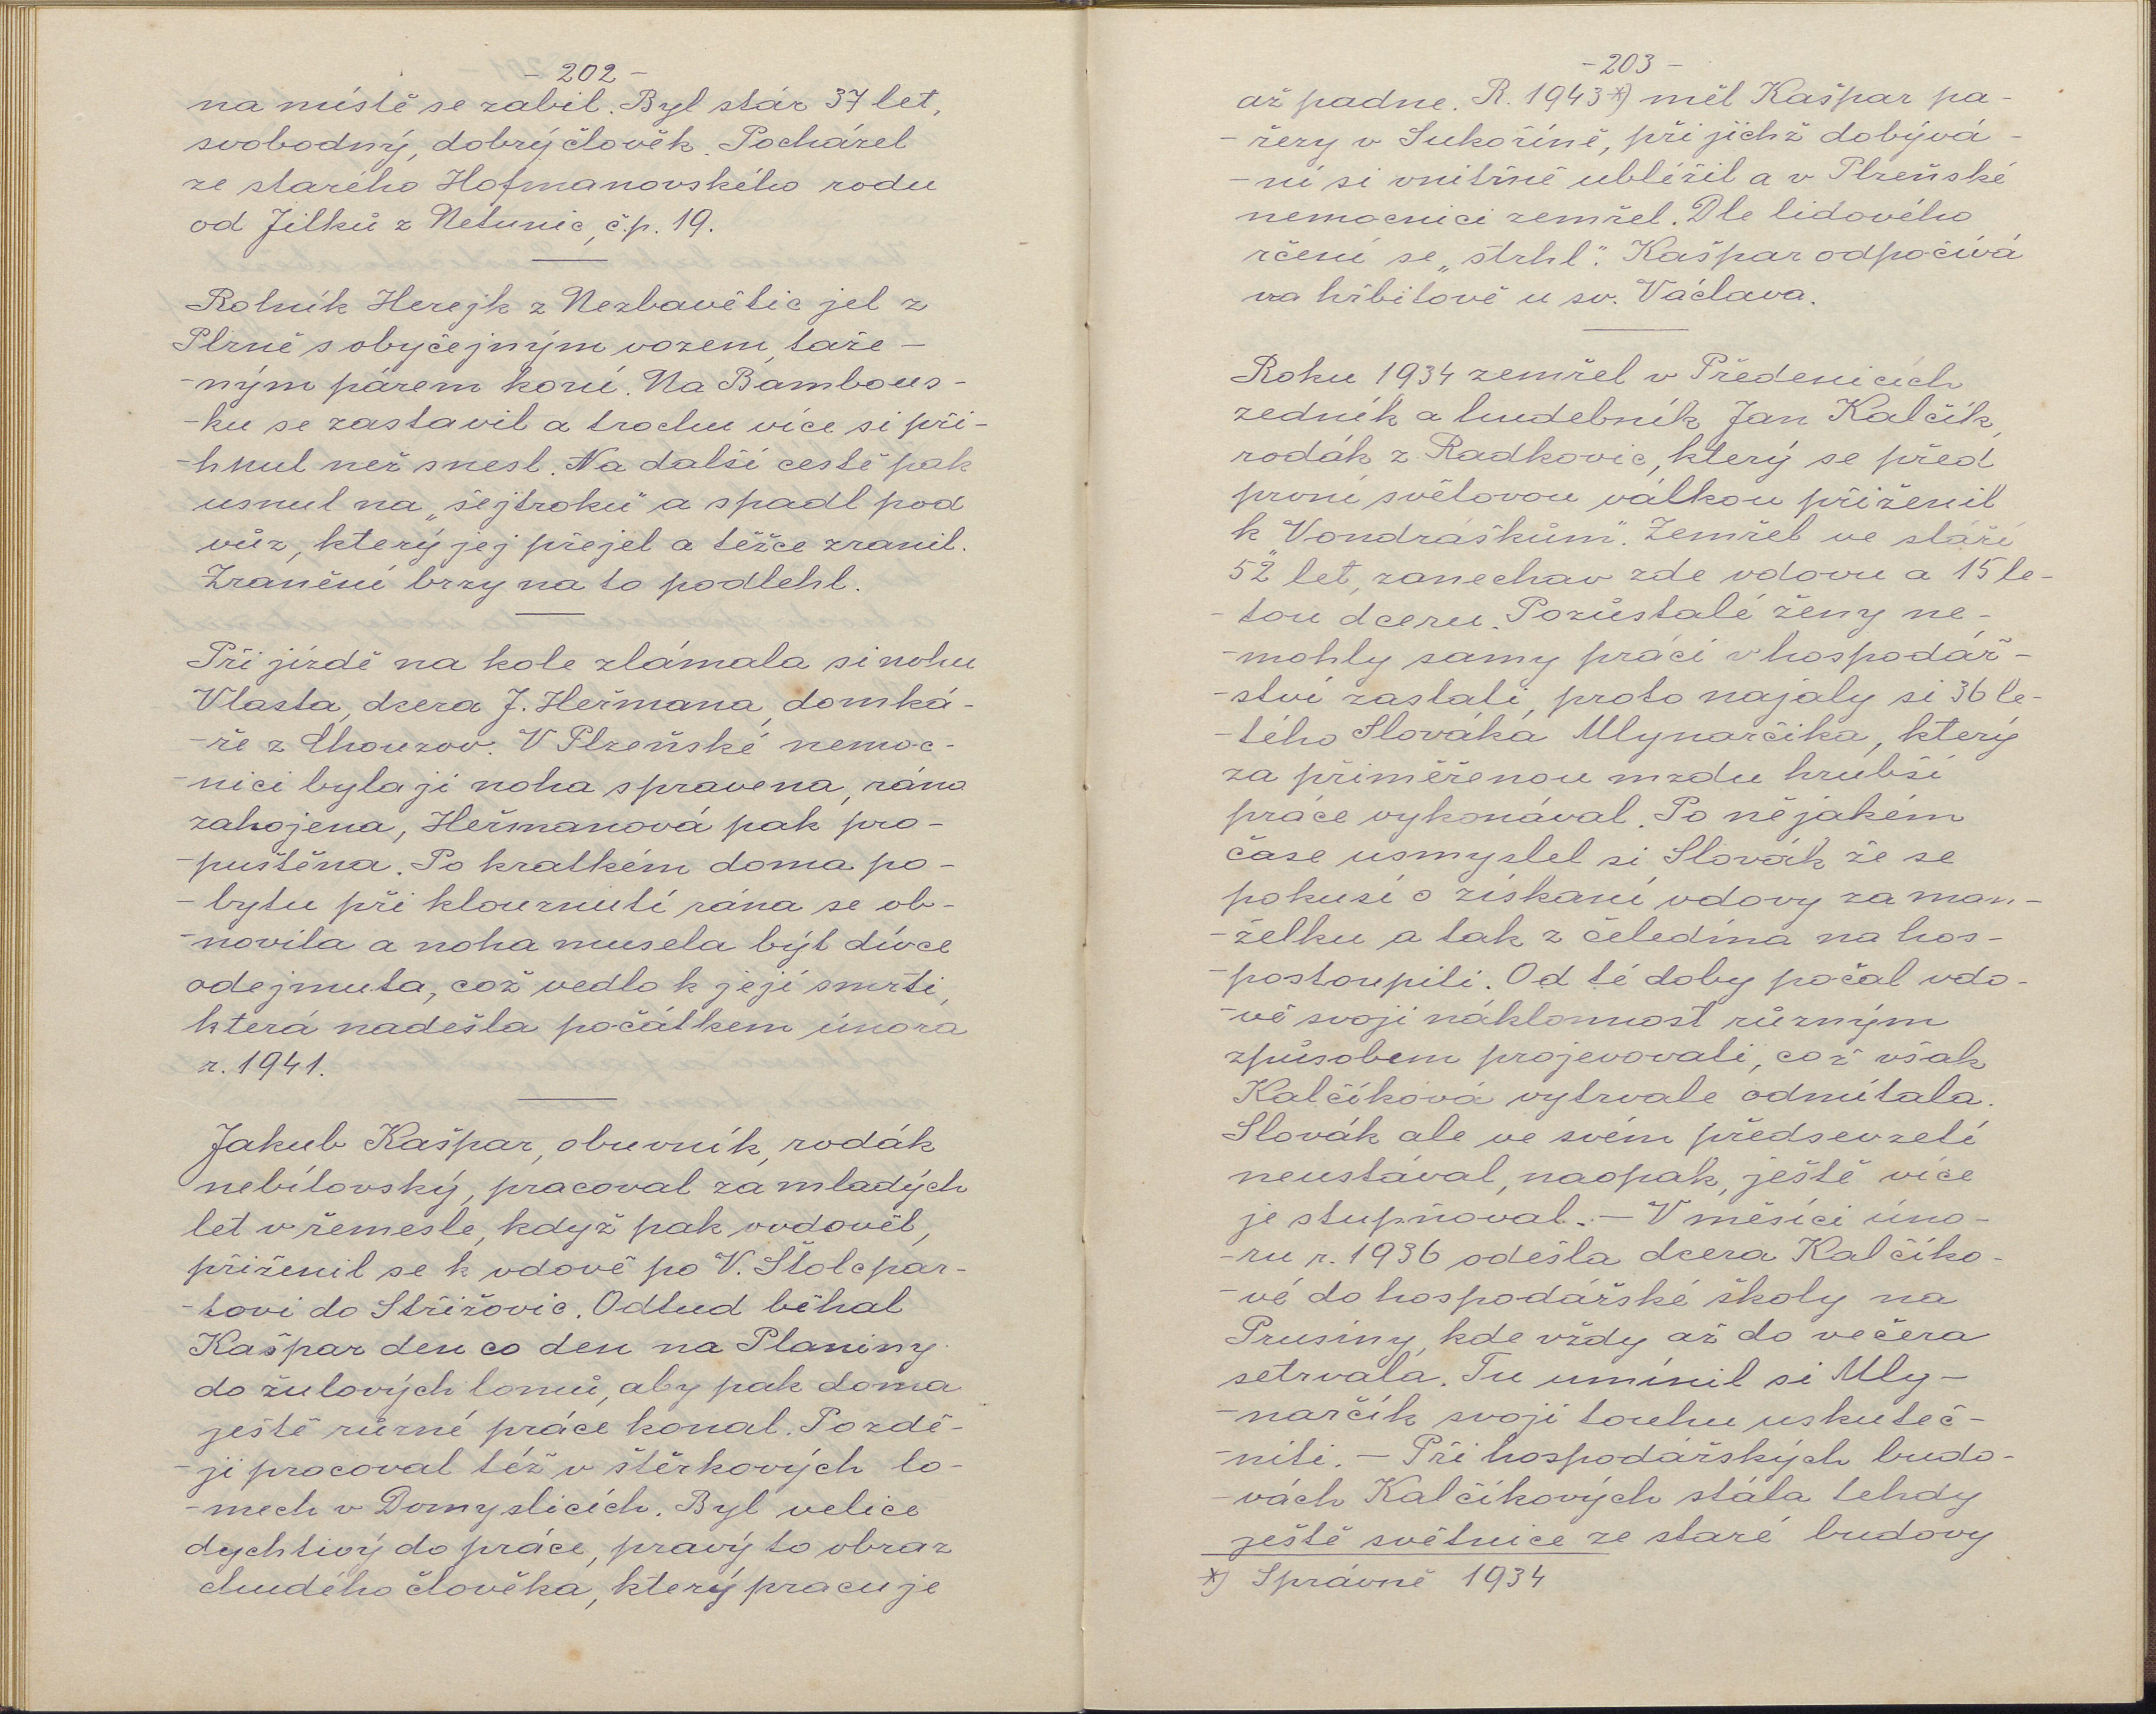 - 202 -
na místě se zabil. Byl stár 37 let,
svobodný, dobrý člověk. Pocházel
ze starého Hofmanovského rodu
od Jílků z Netunic, č.p. 19.
Rolník Herejk z Nezbavětic jel z
Plzně s obyčejným vozem, taže-
-ným párem koní. Na Bambous-
-ku se zastavil a trochu více si při-
-hnul než snesl. Na další cestě pak
usnul na „šejtroku“ a spadl pod
vůz, který jej přejel a těžce zranil.
Zranění brzy na to podlehl.
Při jízdě na kole zlámala si nohu
Vlasta, dcera J. Heřmana, domká-
-ře z Chouzov. V Plzeňské nemoc-
-nici byla jí noha spravena, rána
zahojena, Heřmanová pak pro-
-puštěna. Po kratkém doma po-
-bytu při klouznutí rána se ob-
-novila a noha musela být dívce
odejmuta, což vedlo k její smrti,
která nadešla počátkem února
r. 1941.
Jakub Kašpar, obuvník, rodák
nebílovský, pracoval za mladých
let v řemesle, když pak ovdověl,
přiženil se k vdově po V. Štolcpar-
-tovi do Střížovic. Odtud běhal
Kašpar den co den na Planiny
do žulových lomů, aby pak doma
ještě různé práce konal. Pozdě-
-ji pracoval též v štěrkových lo-
-mech v Domyslicích. Byl velice
dychtivý do práce, pravý to obraz
chudého člověka, který pracuje
- 203 -
až padne. R. 1943*) měl Kašpar pa-
-řezy v Sukoříně, při jichž dobývá-
-ní si vnitřně ublížil a v Plzeňské
nemocnici zemřel. Dle lidového
rčení se „strhl“. Kašpar odpočívá
na hřbitově u sv. Václava.
Roku 1934 zemřel v Předenicích
zedník a hudebník Jan Kalčík,
rodák z Radkovic, který se před
první světovou válkou přiženil
k „Vondráškům“. Zemřel ve stáří
52 let, zanechav zde vdovu a 15 le-
-tou dceru. Pozůstalé ženy ne-
-mohly samy práci v hospodář-
-ství zastati, proto najaly si 36 le-
-tého Slováka Mlynarčíka, který
za přiměřenou mzdu hrubší
práce vykonával. Po nějakém
čase usmyslel si Slovák že se
pokusí o získaní vdovy za man-
-želku a tak z čeledína na hos-
-postoupiti. Od té doby počal vdo-
-vě svoji náklonnost různým
způsobem projevovati, což však
Kalčíková vytrvale odmítala.
Slovák ale ve svém předsevzetí
neustával, naopak, ještě více
je stupňoval. - V měsíci úno-
-ru r. 1936 odešla dcera Kalčíko-
-vé do hospodářské školy na
Prusiny, kde vždy až do večera
setrvala. Tu umínil si Mly-
-narčík svoji touhu uskuteč-
-niti. - Při hospodářských budo-
-vách Kalčíkových stála tehdy
ještě světnice ze staré budovy
*) Správně 1934